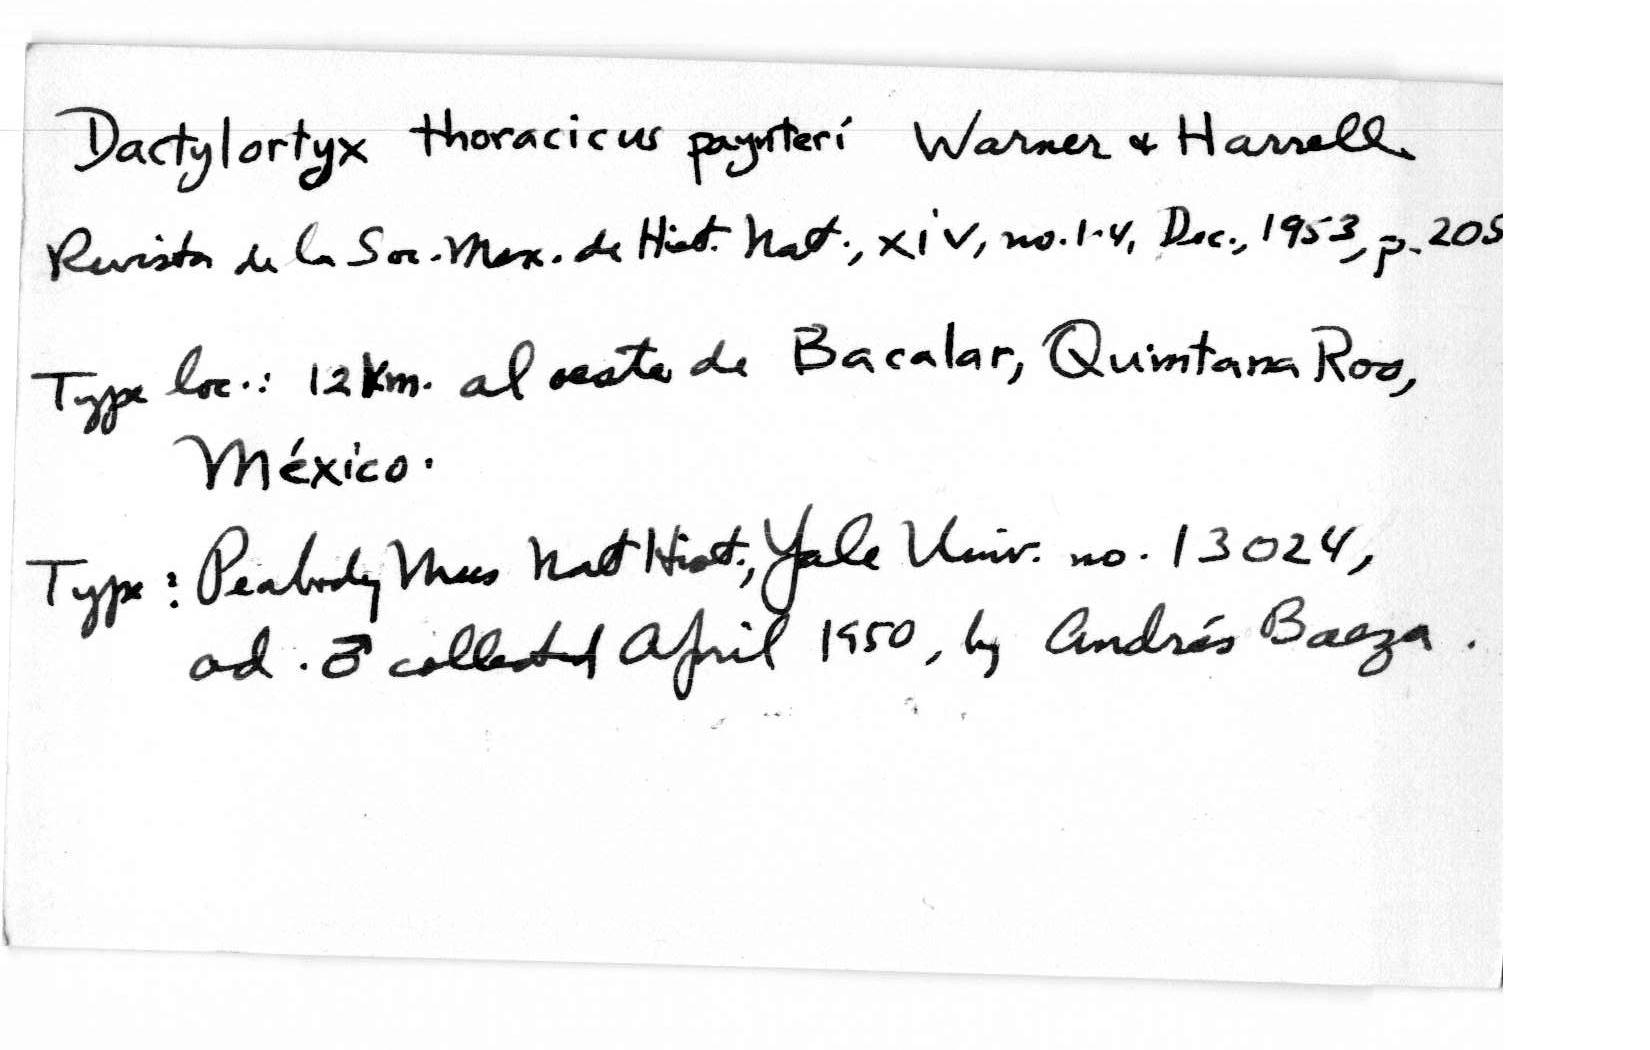 Dactylortyx thoracicus paynteri Warner & Harrell.
Revista de la Soc. Mex. de Hist. Nat., xiv, no. 1-4, Dec., 1953, p. 205
Type loc.: 12 Km. al oeste de Bacalar, Quintana Roo,
México.
Type: Peabody Mus Nat Hist., Yale Univ. no. 13024,
ad. ♂ collected April 1950, by Andrés Baeza.